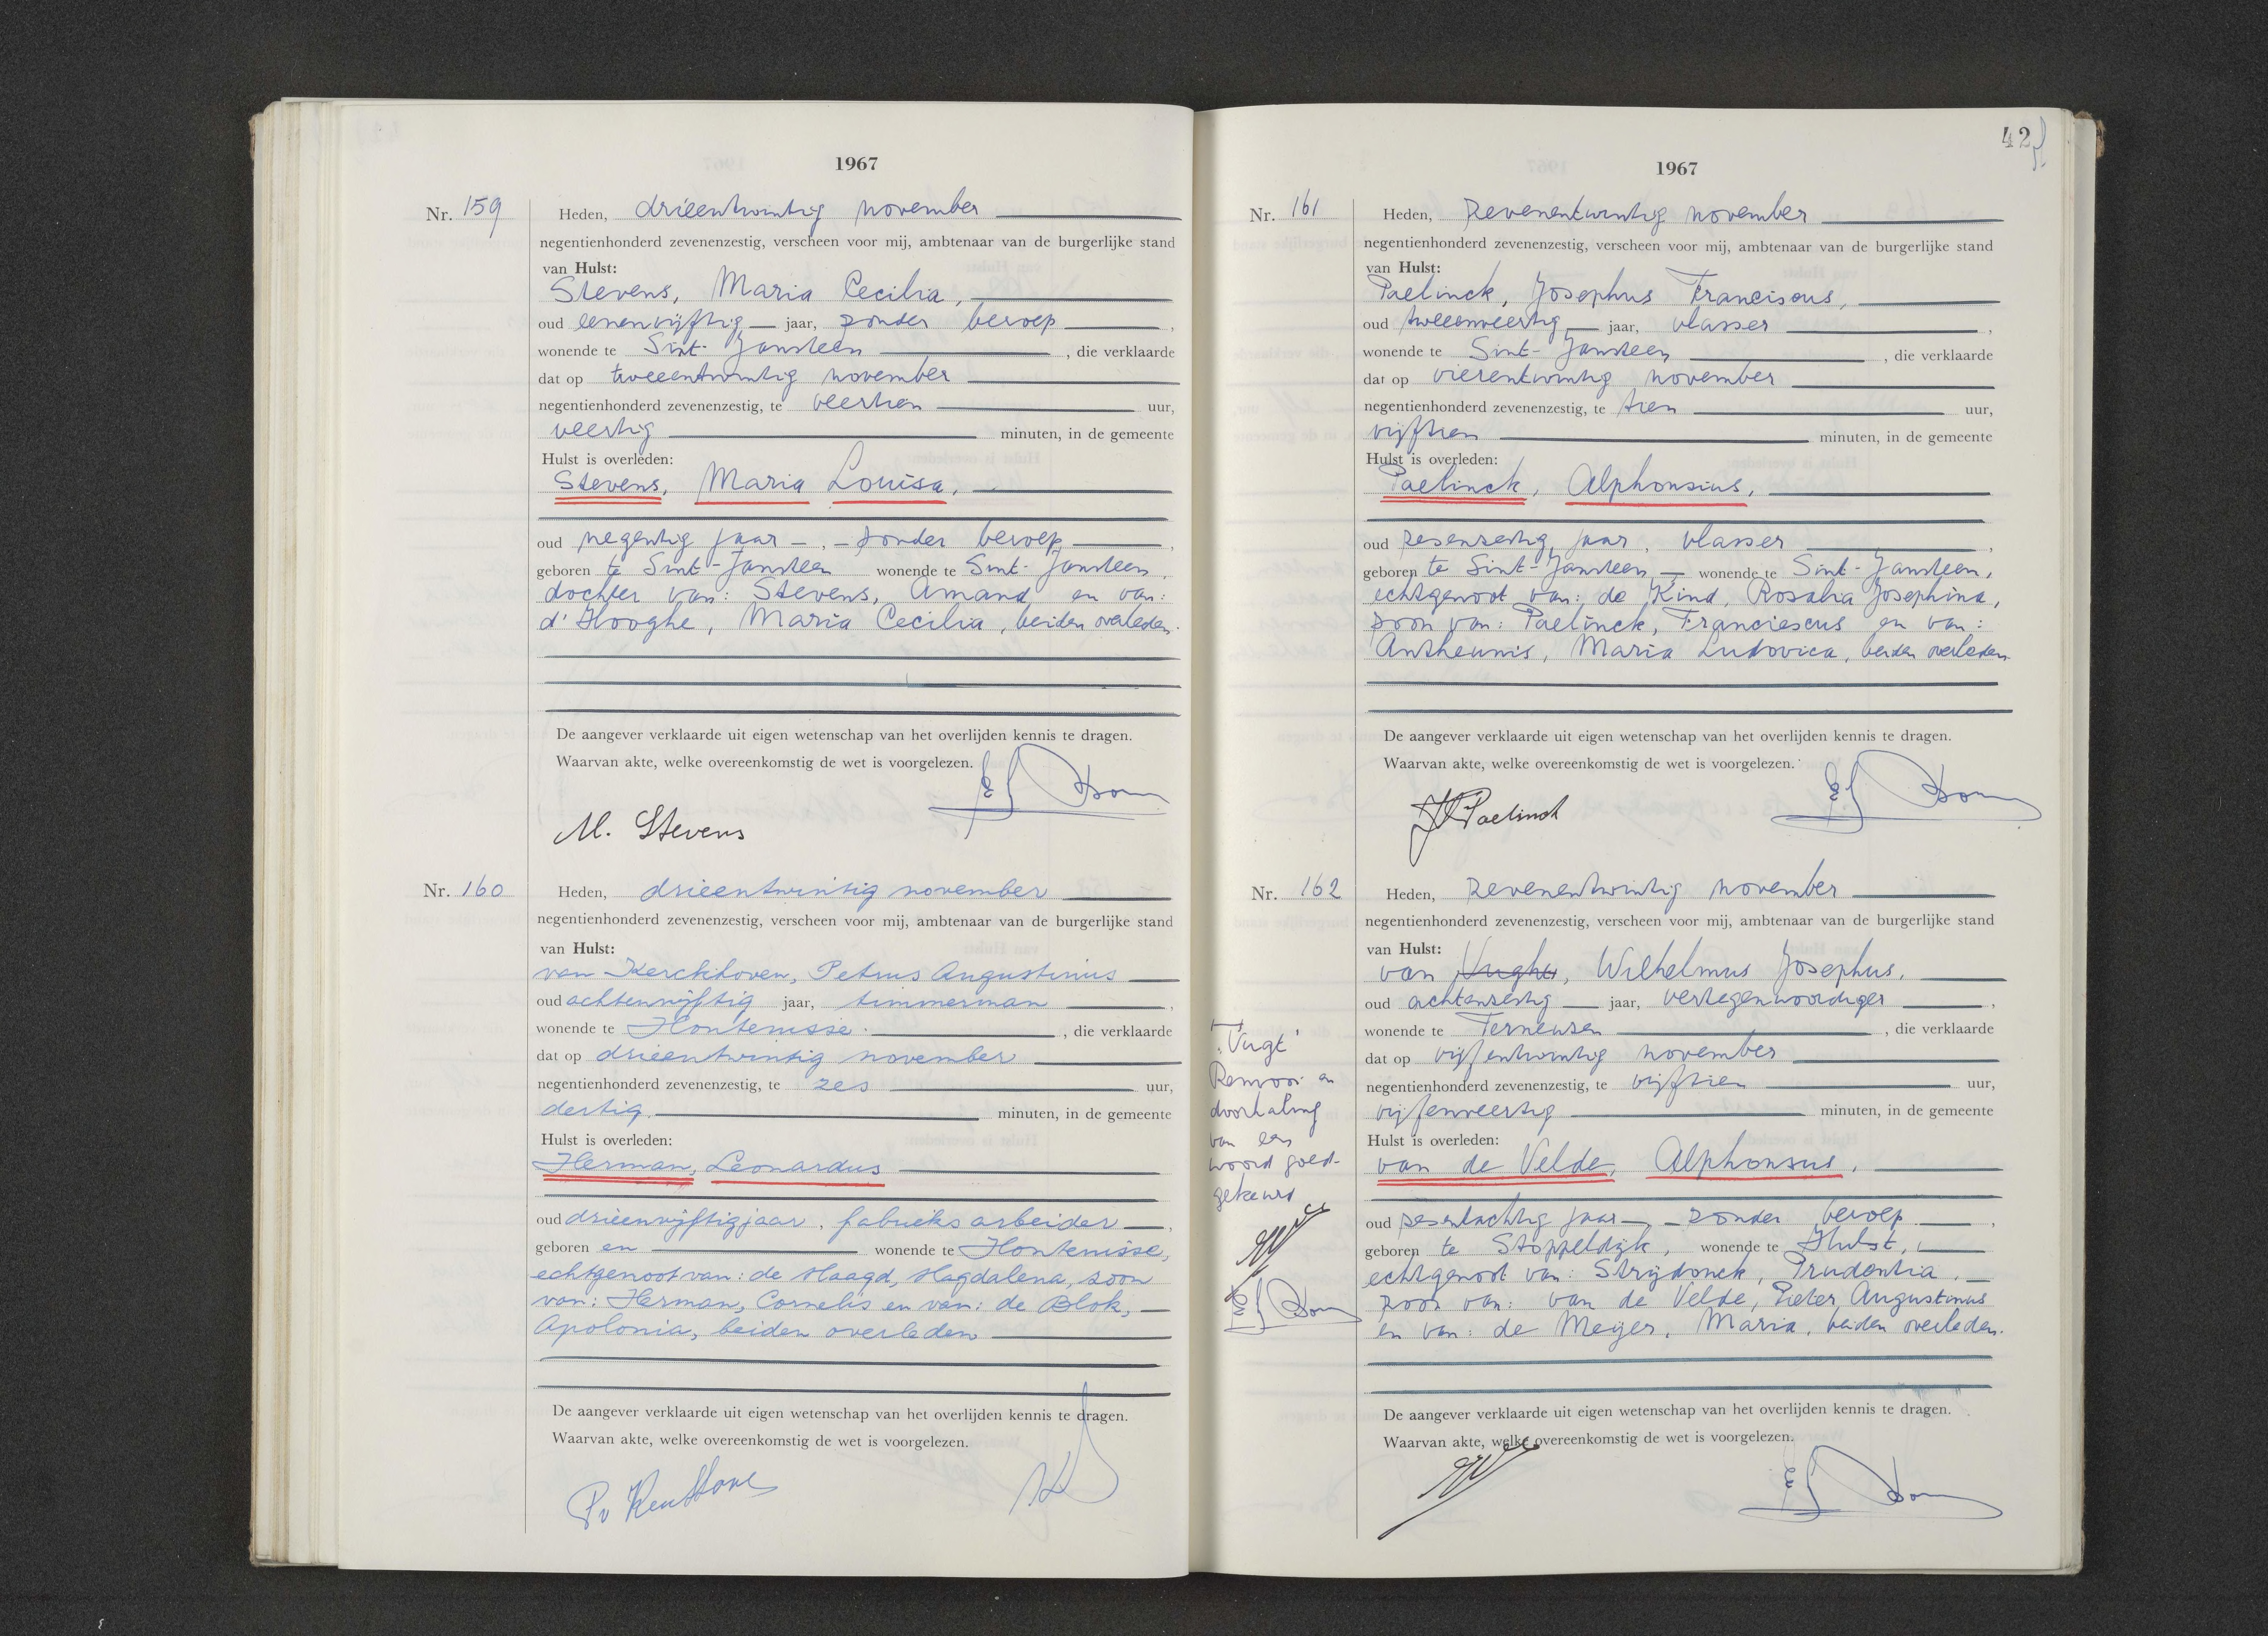 1967
Nr. 159
Heden, drieentwintig november
negentienhonderd zevenenzestig, verscheen voor mij, ambtenaar van de burgerlijke stand
van Hulst:
Stevens, Maria Cecilia,
oud eenenvijftig jaar, zonder beroep,
wonende te Sint-Jansteen, die verklaarde
dat op tweeentwintig november
negentienhonderd zevenenzestig, te veertien uur,
veertig minuten, in de gemeente
Hulst is overleden:
Stevens, Maria Louisa,
oud negentig jaar, zonder beroep,
geboren te Sint-Jansteen wonende te Sint-Jansteen,
dochter van: Stevens, Amand en van:
d'Hooghe, Maria Cecilia, beiden overleden.
De aangever verklaarde uit eigen wetenschap van het overlijden kennis te dragen.
Waarvan akte, welke overeenkomstig de wet is voorgelezen.
M. Stevens
Nr. 160
Heden, drieentwintig november
negentienhonderd zevenenzestig, verscheen voor mij, ambtenaar van de burgerlijke stand
van Hulst:
van Kerckhoven, Petrus Augustinus
oud achtenvijftig jaar, timmerman,
wonende te Hontenisse, die verklaarde
dat op drieentwintig november
negentienhonderd zevenenzestig, te zes uur,
dertig minuten, in de gemeente
Hulst is overleden:
Herman, Leonardus
oud drieenvijftig jaar, fabrieksarbeider,
geboren en wonende te Hontenisse,
echtgenoot van: de Maagd, Magdalena, zoon
van: Herman, Cornelis en van: de Blok,
Apolonia, beiden overleden
De aangever verklaarde uit eigen wetenschap van het overlijden kennis te dragen.
Waarvan akte, welke overeenkomstig de wet is voorgelezen.
42
1967
Nr. 161
Heden, zevenentwintig november
negentienhonderd zevenenzestig, verscheen voor mij, ambtenaar van de burgerlijke stand
van Hulst:
Paelinck, Josephus Franciscus,
oud tweeenveertig jaar, vlasser,
wonende te Sint-Jansteen, die verklaarde
dat op vierentwintig november
negentienhonderd zevenenzestig, te tien uur,
vijftien minuten, in de gemeente
Hulst is overleden:
Paelinck, Alphonsius,
oud zesenzestig jaar, vlasser,
geboren te Sint-Jansteen wonende te Sint-Jansteen,
echtgenoot van: de Kind, Rosalia Josephina,
zoon van: Paelinck, Franciescus en van:
Antheunis, Maria Ludovica, beiden overleden.
De aangever verklaarde uit eigen wetenschap van het overlijden kennis te dragen.
Waarvan akte, welke overeenkomstig de wet is voorgelezen.
Paelinck
Nr. 162
Heden, zevenentwintig november
negentienhonderd zevenenzestig, verscheen voor mij, ambtenaar van de burgerlijke stand
van Hulst:
van Vught, Wilhelmus Josephus,
oud achtenzestig jaar, vertegenwoordiger,
wonende te Terneuzen, die verklaarde
dat op vijfentwintig november
negentienhonderd zevenenzestig, te vijftien uur,
vijfenveertig minuten, in de gemeente
Hulst is overleden:
van de Velde, Alphonsus,
oud zesentachtig jaar, zonder beroep,
geboren te Stoppeldijk, wonende te Hulst,
echtgenoot van: Strijdonck, Prudentia,
zoon van: van de Velde, Pieter Augustinus
en van: de Meijer, Maria, beiden overleden.
De aangever verklaarde uit eigen wetenschap van het overlijden kennis te dragen.
Waarvan akte, welke overeenkomstig de wet is voorgelezen.
"Vugt"
Renvooi en
doorhaling
van een
woord goed-
gekeurd